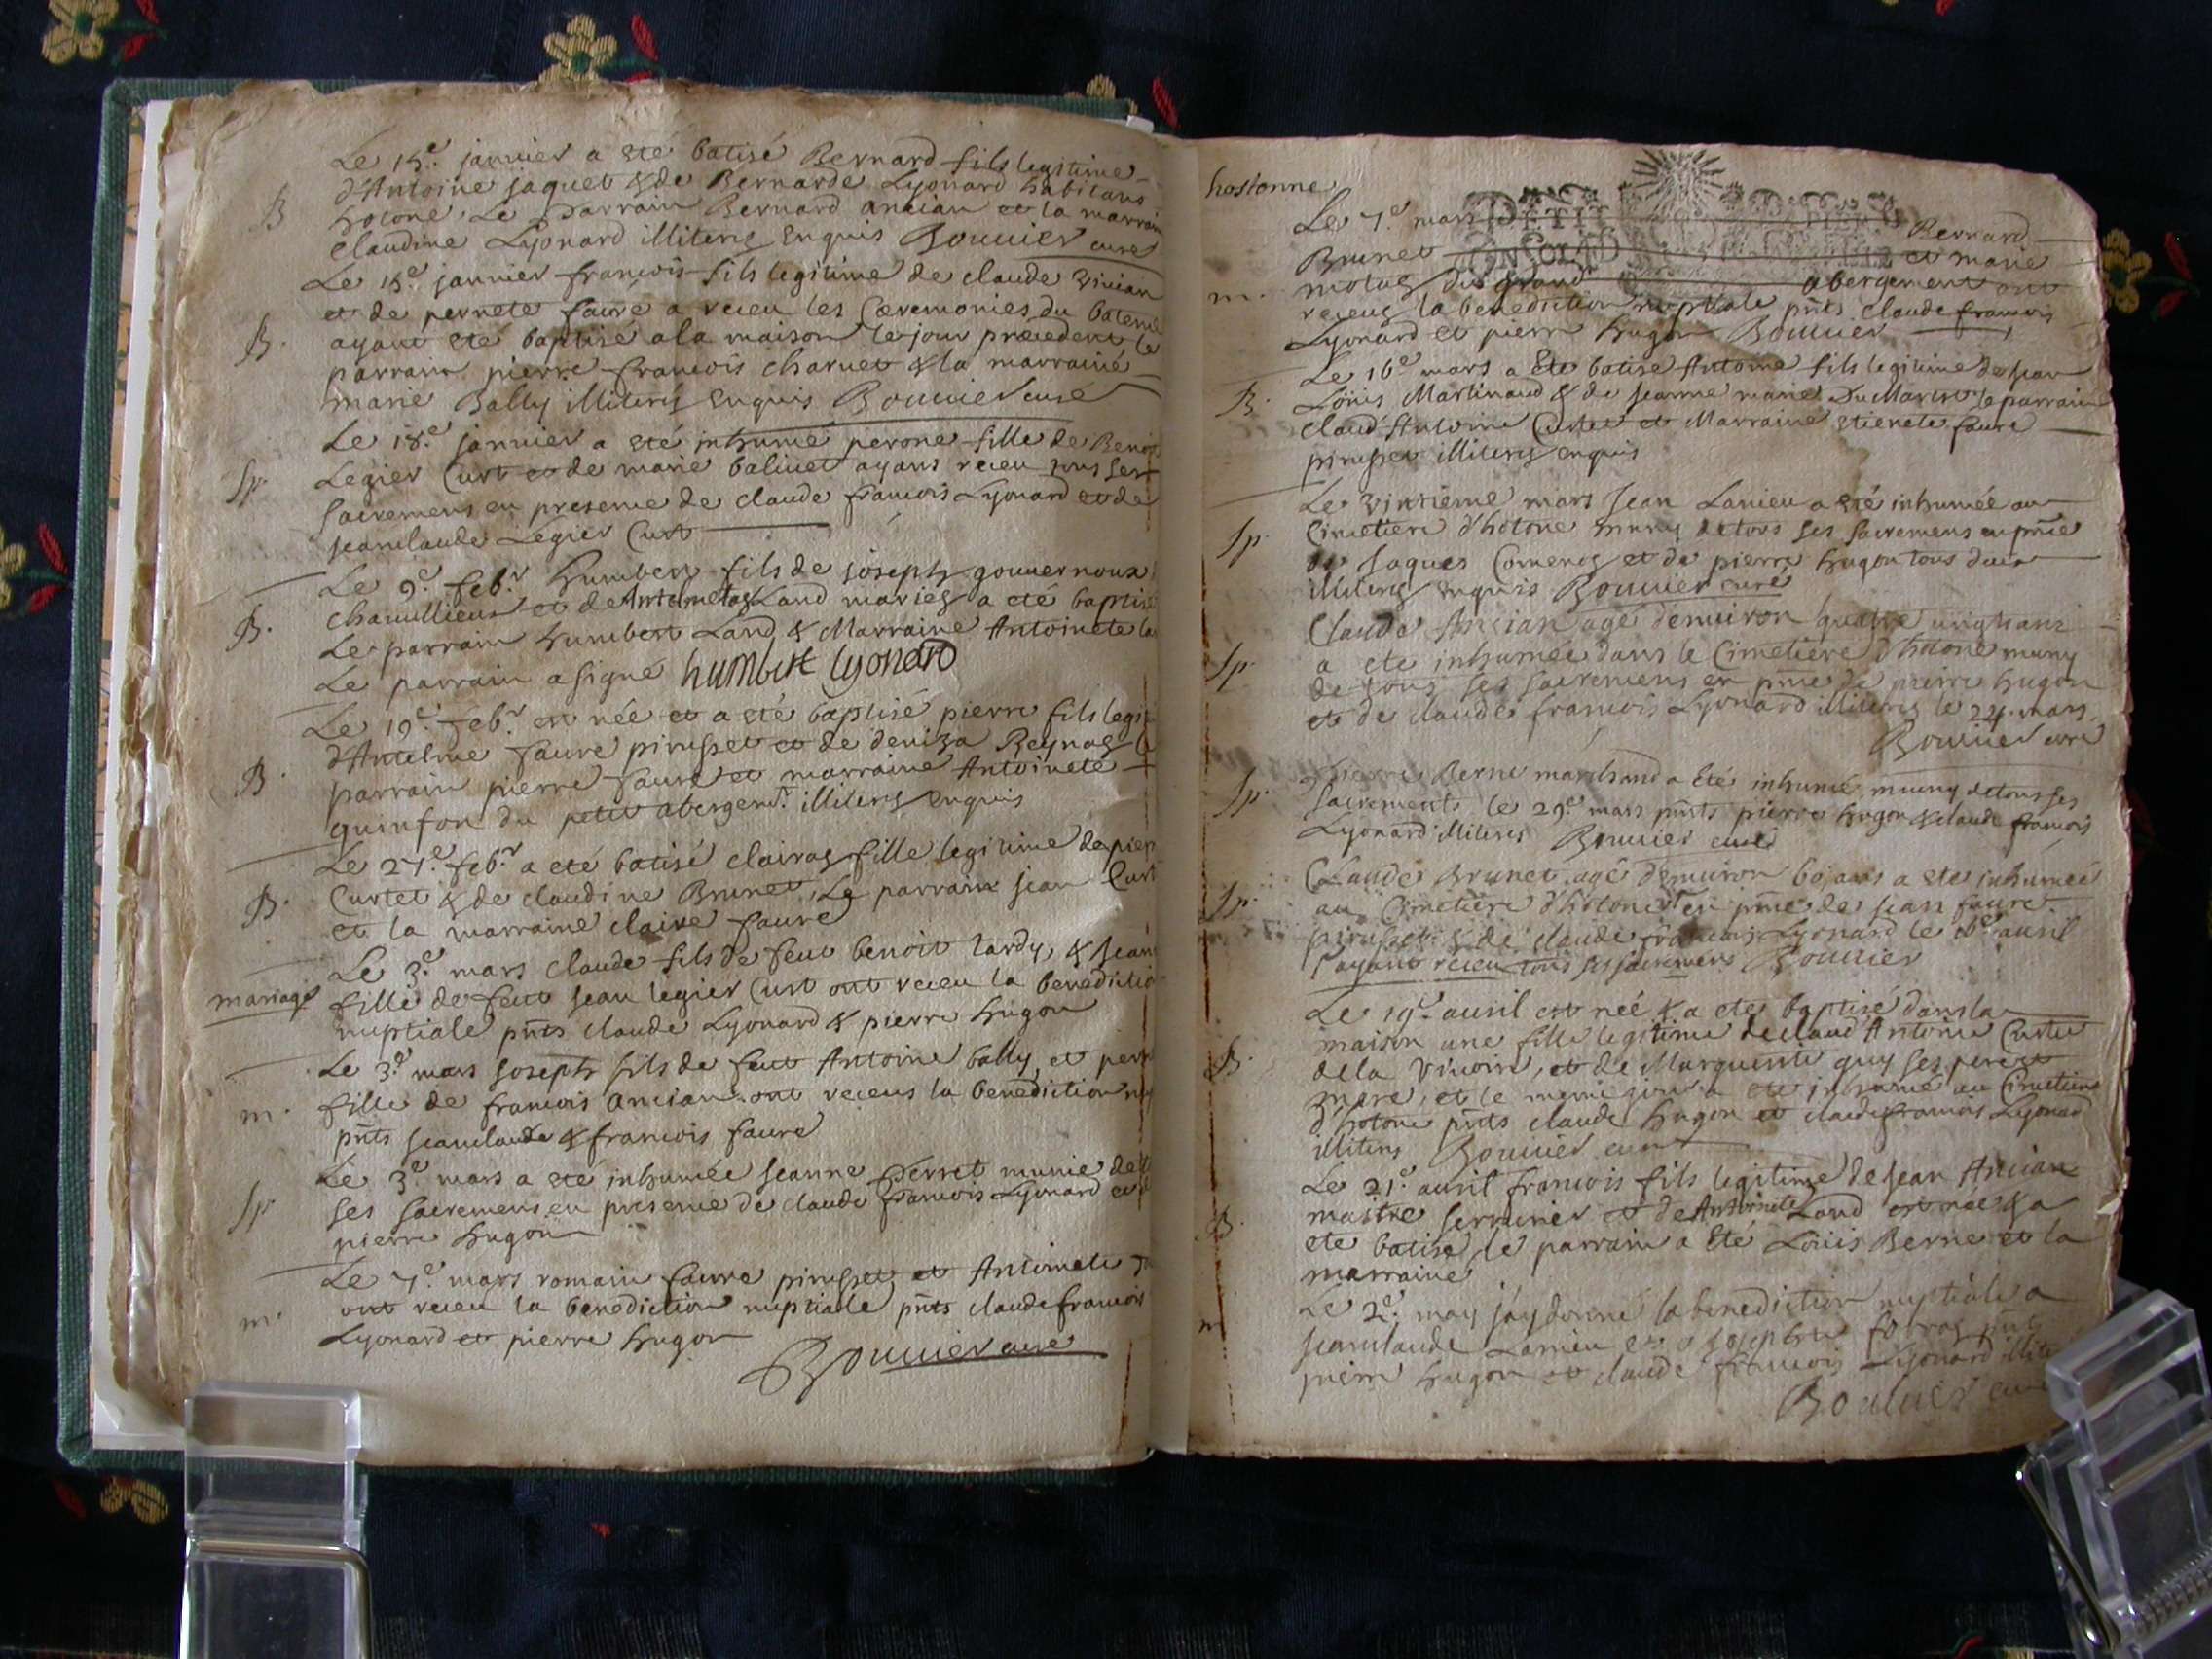 Le 15.e janvier a eté batisé Bernard fils legitime
d'Antoine jaquet & de Bernarde Lyonard habitans
B
hotone, Le parrain Bernard ancian et la marrain
claudine Lyonard illiteres enquis Bouvier curé
Le 15.e janvier francois fils legitime de claude vivian
et de pernete favre a receu les Cæremonies du bateme
B.
ayant eté baptisé a la maison le jour precedent le
parrain pierre francois charvet & la marraine
marie Bally illiteres enquis Bouvier curé
Le 18.e janvier a eté inhumé perone fille de Benoit
Legier Curt et de marie balivet ayans receu tous ses
Sp.
sacremens en presence de claude francois Lyonard et de
jeanclaude Legier Curt
Le 9.e feb.r humbert fils de joseph gouvernoux
chamillieu et de Antoinete Land mariés a eté baptisé
B.
Le parrain humbert Land & Marraine Antoinete la
Le parrain a signé humbert lyonard
Le 19.e feb.r est née et a eté baptisé pierre fils legi
d'Antelme favre pirusset et de deniza Reynas
B.
parrain pierre favre et marraine Antoinete
guinfon du petit abergem.t illiteres enquis
Le 27.e feb.r a eté batisé clairas fille legitime de pier
B.
Curtet & de claudine Brunet, Le parrain jean Curt
et la marraine claire favre
Le 3.e mars claude fils de feut benoit tardy, & jean
mariage
fille de feut jean legier Curt ont receu la benedictio
nuptiale pñts claude Lyonard & pierre hugon
Le 3.e mars joseph fils de feut Antoine bally et per
m.
fille de francois ancian ont receus la benediction nu
pñts jeanclaude & francois favre
Le 3.e mars a eté inhumée jeanne perret munie de
Sp
ses sacremens en presence de claude francois Lyonard et
pierre hugon
Le 7.e mars romain favre pirusset et Antoinete
m.
ont receu la benediction nuptiale pñts claude francois
Lyonard et pierre hugon
Bouvier curé
hostonne
Le 7.e mars Bernard
Brunet et marie
m.
du grand abergement ont
receus la benediction nuptiale pñts claude francois
Lyonard et pierre hugon Bouvier
Le 16.e mars a eté batisé Antoine fils legitime de jean
B.
Loüis Martinaud & de jeanne marie le parrain
claud'Antoine Curtet et Marraine etienete favre
pirusset illiteres enquis
Le vintieme mars Jean Lanieu a eté inhumée au
Sp.
Cimetiere d'hotone muny de tous ses sacremens en pñce
de jaques et de pierre hugon tous deux
illiteres enquis Bouvier curé
Claude Ancian agé d'environ quatre vingt ans
Sp.
a ete inhumée dans le Cimetiere d'hotone muny
de tous ses sacremens en pñce de pierre hugon
et de claude francois Lyonard illiteres le 24. mars.
Bouvier curé
Sp.
pierre Berne marchand a eté inhumé muny de tous ses
sacrements le 29.e mars pñts pierre hugon & claude francois
Lyonard illiteres Bouvier curé
Claude Brunet agé d'environ 60 ans a ete inhumée
Sp.
au Cimetiere d'hotone en pñce de jean favre
pirusset & de claude francois Lyonard le avril
ayant receu tous ses sacremens Bouvier
Le 19.e avril est née & a ete baptisé dans la
maison une fille legitime de claud'Antoine Curtet
B.
de la et de Marguerite guy ses pere et
mere, et le meme jour a ete inhumé au Cimetiere
d'hotone pñts claude hugon et claude francois Lyonard
illiteres Bouvier curé
Le 21.e avril francois fils legitime de jean Ancian
maitre serrurier et de Antoinete Land est née & a
B.
ete batisé, le parrain a eté Loüis Berne et la
marraine
Le 2.e may j'ay donné la benediction nuptiale a
m
jeanclaude Lanieu et a josephte pñts
pierre hugon et claude francois Lyonard
Bouvier curé